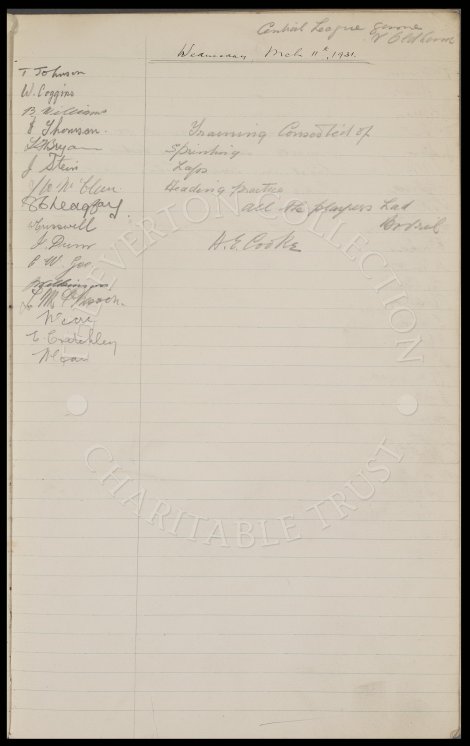 Central League Game
V Oldham
Wednesday, Mch 11th, 1931.
T Johnson
W. Coggins
B. Williams
J Thomson.
Bryan
J Stein
J W McClure
Cresswell
J Dunn
C W Gee
Wilkinson
E. Critchley
Training Consested of
Sprinting
Laps
Heading practice
all the players had
Bovril
H. E. Cooke
EVERTON COLLECTION
CHARITABLE TRUST